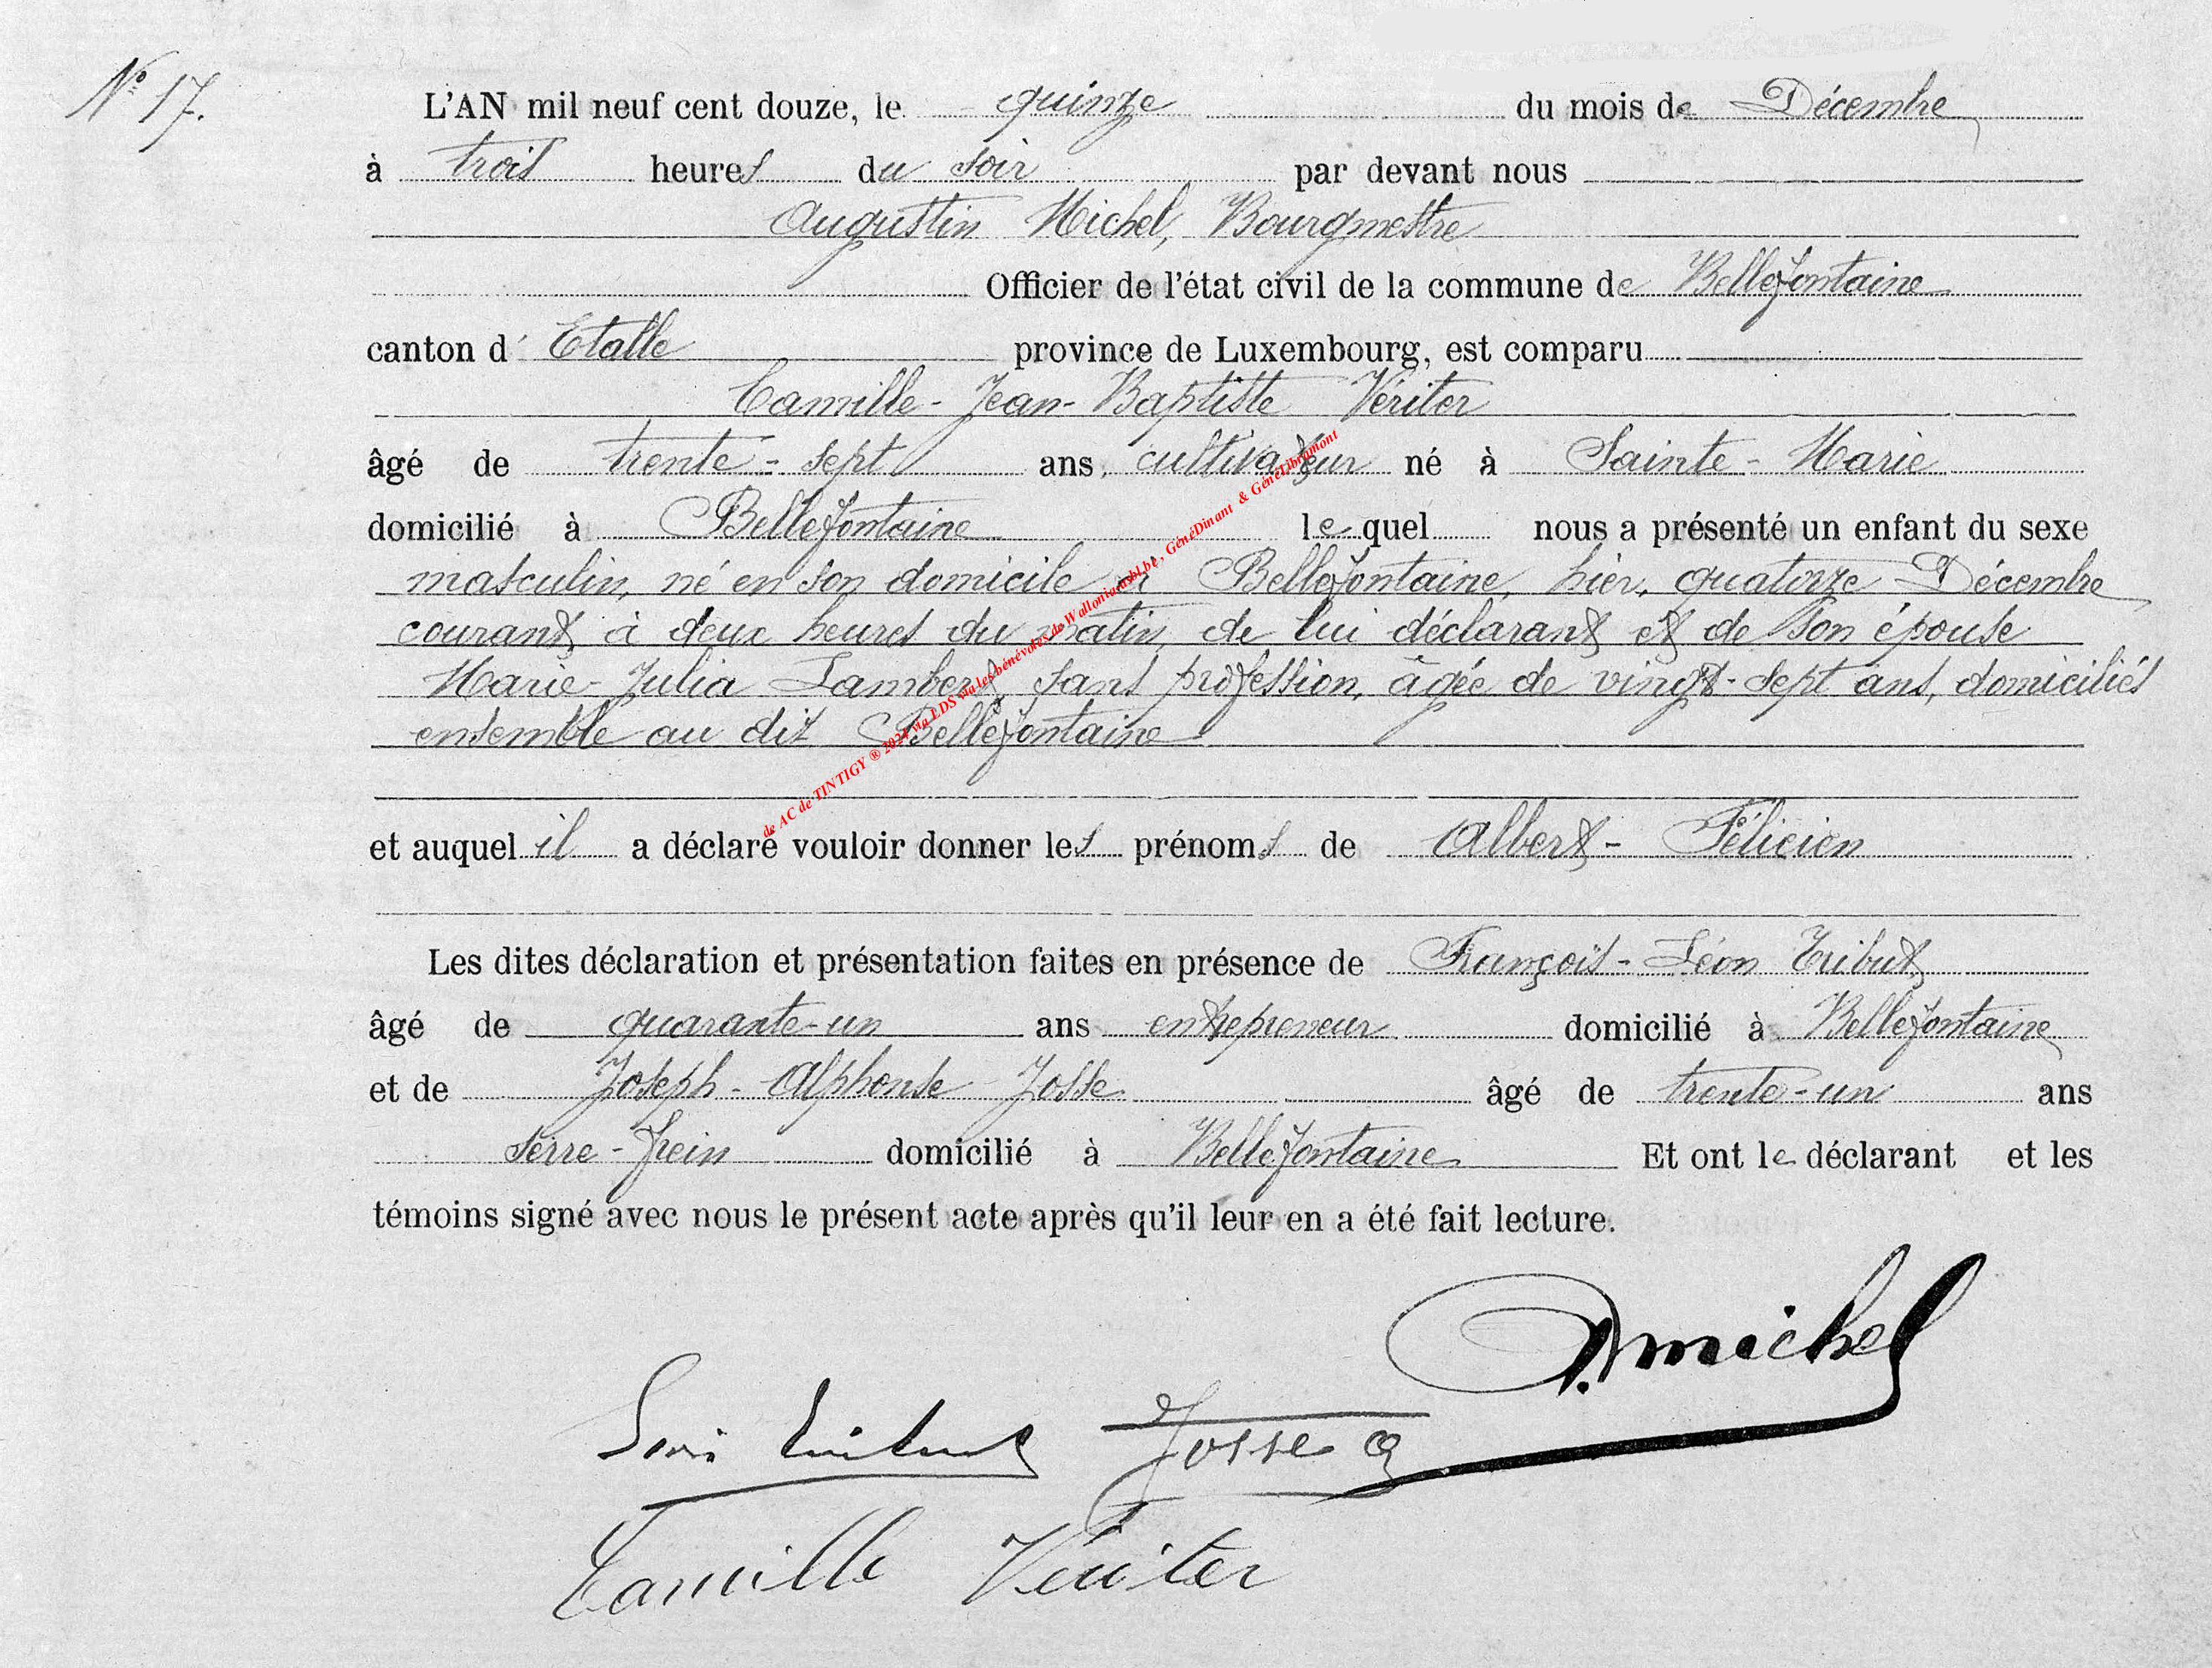 N° 17.
L'AN mil neuf cent douze, le quinze du mois de Décembre
à trois heures du soir par devant nous
Augustin Michel, Bourgmestre
Officier de l'état civil de la commune de Bellefontaine
canton d' Etalle province de Luxembourg, est comparu
Camille-Jean-Baptiste Vériter
âgé de trente-sept ans, cultivateur né à Sainte-Marie
domicilié à Bellefontaine lequel nous a présenté un enfant du sexe
masculin, né en son domicile à Bellefontaine, hier, quatorze Décembre
courant, à deux heures du matin, de lui déclarant et de son épouse
Marie-Julia Lambert, sans profession, âgée de vingt-sept ans, domiciliés
ensemble au dit Bellefontaine
et auquel il a déclaré vouloir donner les prénoms de Albert-Félicien
Les dites déclaration et présentation faites en présence de François-Léon Tribut,
âgé de quarante-un ans entrepreneur domicilié à Bellefontaine
et de Joseph-Alphonse Josse âgé de trente-un ans
serre-frein domicilié à Bellefontaine Et ont le déclarant et les
témoins signé avec nous le présent acte après qu'il leur en a été fait lecture.
de AC de TINTIGY ® 2024 via LDS via les bénévoles de Wallonia asbl.be, GénéDinant & GénéLibramont
A michel
Josse a
Camille Vériter